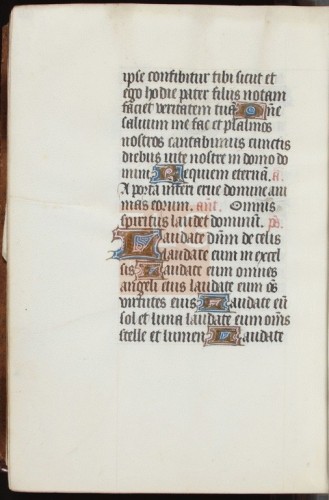 ipse confibitur tibi sicut et
ego hodie pater filius notam
faciet veritatem tuā Dñe
salvum me fac et psalmos
nostros cantabimus cunctis
diebus vite nostre in domo do
mini Requiem eternā. a.
A porta inferi erue domine ani
mas eorum. ant. Omnis
spiritus laudet dominū. ps.
Laudate dn̄m de celis
laudate eum in excel
sis Laudate eum omnes
angeli eius laudate eum ōs
virtutes eius Laudate eū
sol et luna laudate eum om̄s
stelle et lumen Laudate